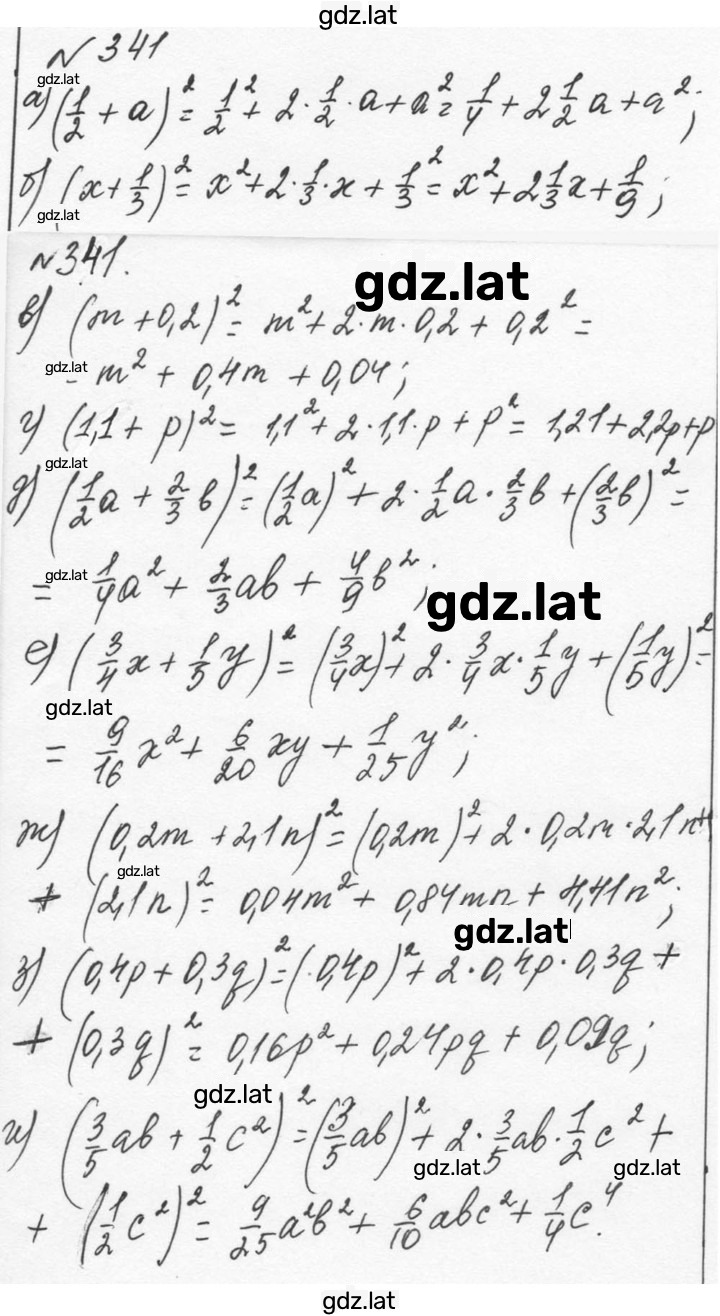 gdz.lat
№ 341
gdz.lat
а) (1/2 + a)² = 1/2² + 2 · 1/2 · a + a² = 1/4 + 2 1/2 a + a²;
б) (x + 1/3)² = x² + 2 · 1/3 · x + 1/3² = x² + 2 1/3 x + 1/9;
gdz.lat
№ 341.
gdz.lat
в) (m + 0,2)² = m² + 2 · m · 0,2 + 0,2² =
gdz.lat
= m² + 0,4m + 0,04;
г) (1,1 + p)² = 1,1² + 2 · 1,1 · p + p² = 1,21 + 2,2p + p
gdz.lat
д) (1/2 a + 2/3 b)² = (1/2 a)² + 2 · 1/2 a · 2/3 b + (2/3 b)² =
gdz.lat
= 1/4 a² + 2/3 ab + 4/9 b²;
gdz.lat
е) (3/4 x + 1/5 y)² = (3/4 x)² + 2 · 3/4 x · 1/5 y + (1/5 y)² =
gdz.lat
= 9/16 x² + 6/20 xy + 1/25 y²;
ж) (0,2m + 2,1n)² = (0,2m)² + 2 · 0,2m · 2,1n +
gdz.lat
+ (2,1n)² = 0,04m² + 0,84mn + 4,41n²;
gdz.lat
з) (0,4p + 0,3q)² = (0,4p)² + 2 · 0,4p · 0,3q +
+ (0,3q)² = 0,16p² + 0,24pq + 0,09q;
gdz.lat
и) (3/5 ab + 1/2 c²)² = (3/5 ab)² + 2 · 3/5 ab · 1/2 c² +
gdz.lat gdz.lat
+ (1/2 c²)² = 9/25 a²b² + 6/10 abc² + 1/4 c⁴.
gdz.lat